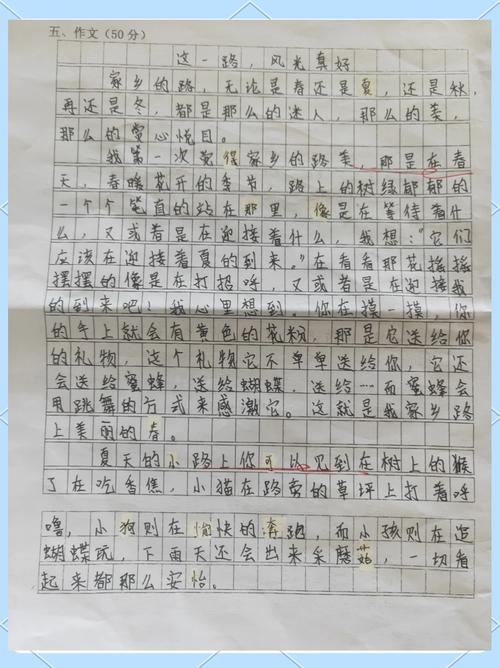 五、作文(50分)
这一路，风光真好
家乡的路，无论是春还是夏，还是秋，
再还是冬，都是那么的迷人，那么的美，
那么的赏心悦目。
我第一次觉得家乡的路美，那是在春
天，春暖花开的季节，路上的树绿郁郁的
一个个笔直的站在那里，像是在等待着什
么，又或者是在迎接着什么，我想："它们
应该在迎接着夏的到来。"在看看那花摇摇
摆摆的像是在打招呼，又或者是在迎接我
的到来吧！我心里想到。你在摸一摸，你
的手上就会有黄色的花粉，那是它送给你
的礼物，这个礼物它不单单送给你，它还
会送给蜜蜂，送给蝴蝶，送给……而蜜蜂会
用跳舞的方式来感激它。这就是我家乡路
上美丽的春。
夏天的小路上你可以见到在树上的猴
子在吃香蕉，小猫在路旁的草坪上打着呼
噜，小狗则在愉快的奔跑，而小孩则在追
蝴蝶玩，下雨天还会出来采蘑菇，一切看
起来都那么安怡。